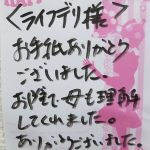 ＜ライフデリ様＞
お手紙ありがとう
ございました。
お陰で母も理解
してくれました。
ありがとうございました。